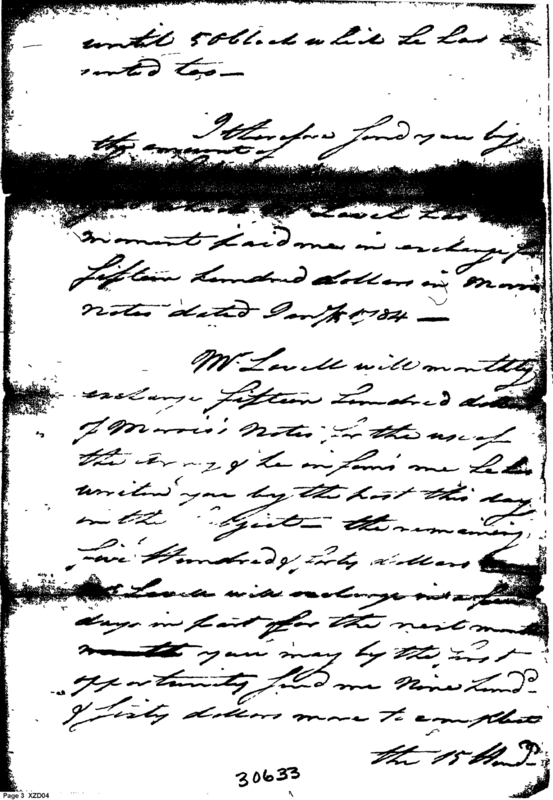 until 5 oClock which he has con
sented too —
I therefore send you by
the amount of
which Mr Lovell has
moment paid me in exchange for
fifteen hundred dollars in Morris
Notes dated Jany 1784 —
Mr Lovell will monthly
exchange fifteen hundred dollars
of Morris's Notes for the use of
the Army & he informs me he has
written you by the post this day
on the the remaining
five Hundred & forty dollars
Mr Lovell will exchange in a few
days in part for the next month
you may by the first
opportunity send me Nine hundd
& sixty dollars more to complete
the 15 Hundd
30633
Page 3 XZD04